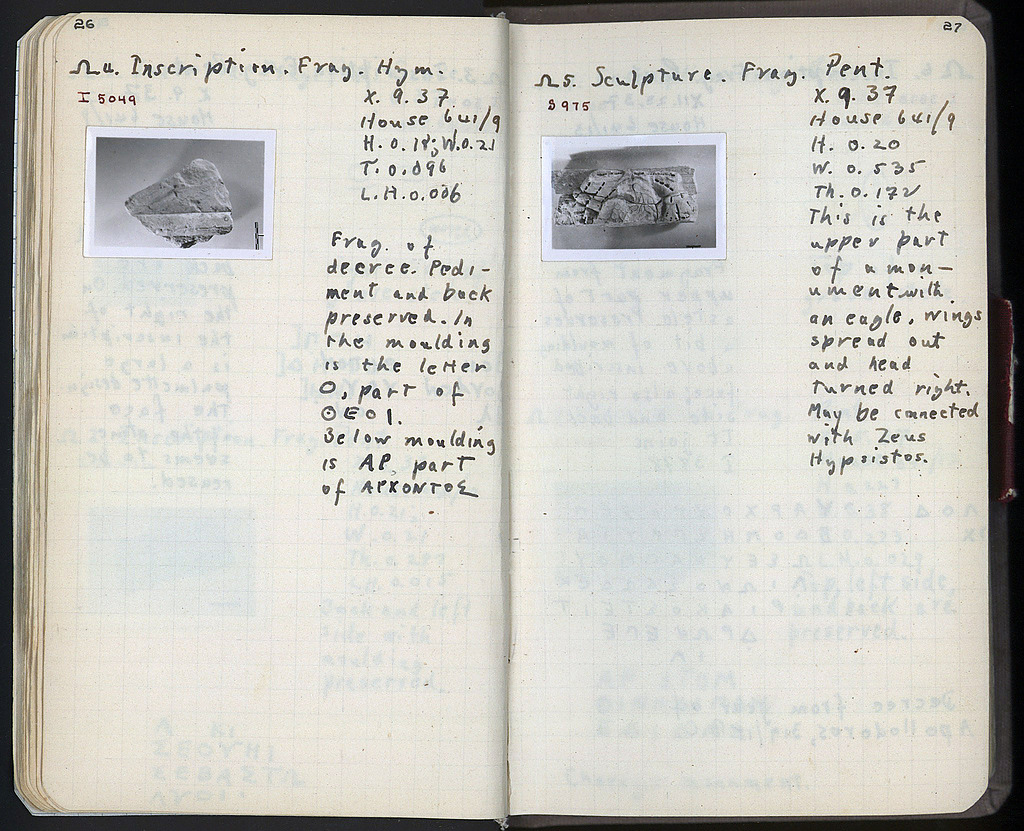 26
Ω4. Inscription. Frag. Hym.
I 5049
X. 9. 37
House 641/9
H. 0.18; W.0.21
T. 0.096
L.H.0.006
Frag. of
decree. Pedi-
ment and back
preserved. In
the moulding
is the letter
O, part of
ΘΕΟΙ.
Below moulding
is ΑΡ, part
of ΑΡΧΟΝΤΟΣ
27
Ω5. Sculpture. Frag. Pent.
S 975
X. 9. 37
House 641/9
H. 0.20
W. 0.535
Th. 0.172
This is the
upper part
of a mon-
ument with
an eagle, wings
spread out
and head
turned right.
May be connected
with Zeus
Hypsistos.